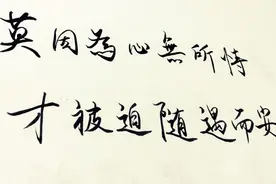 莫因為心無所恃
才被迫随遇而安